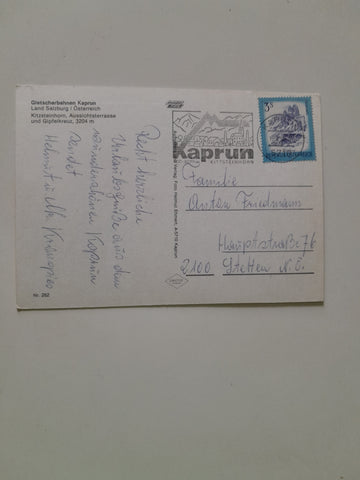 Gletscherbahnen Kaprun
Land Salzburg / Österreich
Kitzsteinhorn, Aussichtsterrasse
und Gipfelkreuz, 3204 m
Recht herzliche
Urlaubsgrüße aus dem
wunderschönen Kaprun
sendet
Helmut u.
Nr. 262
Kaprun
KITZSTEINHORN
Familie
Anton Friedmann
Hauptstraße 76
2100 Stetten N.Ö.